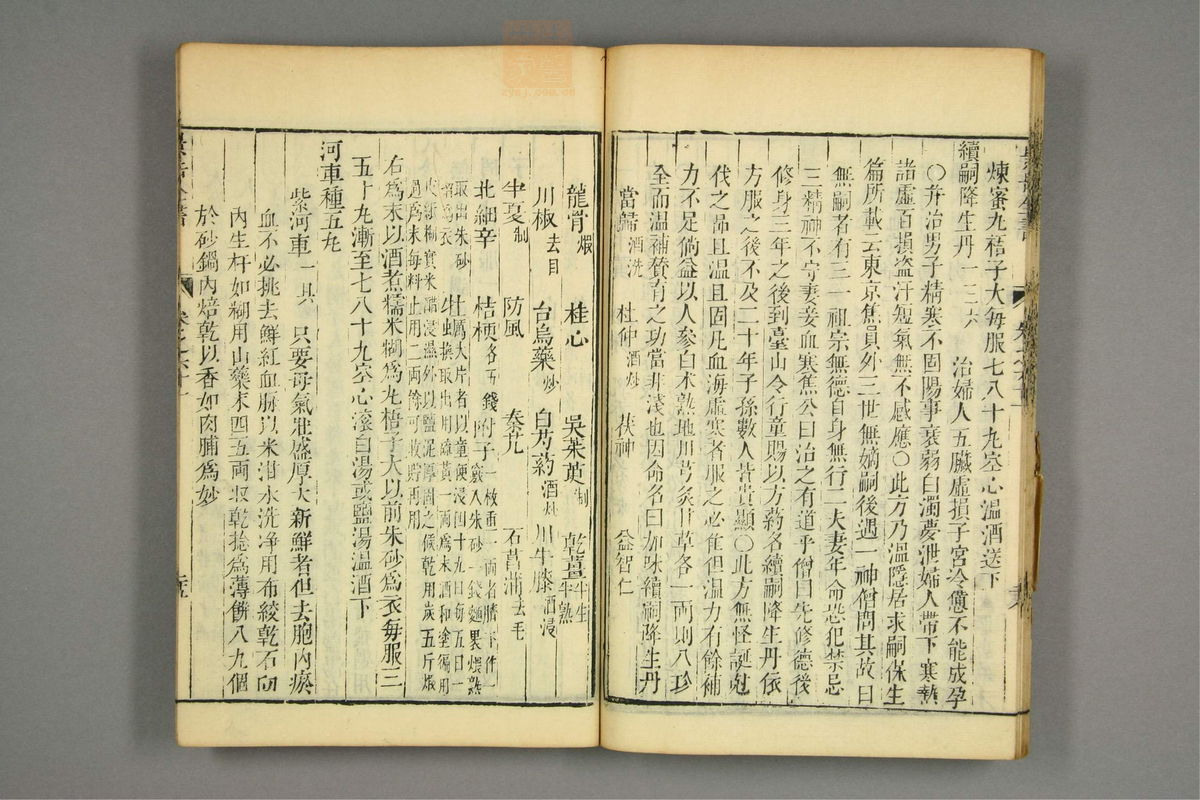 煉蜜丸梧子大每服七八十丸空心温酒送下
續嗣降生丹一三六　治婦人五臟虛損子宮冷憊不能成孕
○并治男子精寒不固陽事衰弱白濁夢泄婦人帶下寒熱
諸虛百損盗汗短氣無不感應○此方乃溫隱居求嗣保生
篇所載云東京焦員外三世無嫡嗣後遇一神僧問其故曰
無嗣者有三一祖宗無德自身無行二夫妻年命恐犯禁忌
三精神不守妻妾血寒焦公曰治之有道乎僧曰先修德後
修身三年之後到臺山令行童賜以方藥名續嗣降生丹依
方服之後不及二十年子孫數人皆貴顯○此方無怪誕尅
伐之品且温且固凡血海虛寒者服之必佳但温力有餘補
力不足倘益以人參白术熟地川芎炙甘草各一兩則八珍
全而温補贊育之功當非淺也因命名曰加味續嗣降生丹
當歸酒洗　杜仲酒炒　茯神　益智仁
龍骨煅　桂心　吳茱萸制　乾薑半生半熟
川椒去目　台烏藥炒　白芍藥酒炒　川牛膝酒浸
半夏制　防風　秦艽　石菖蒲去毛
北細辛　桔梗各五錢　附子一枚重一兩者臍下作一竅入朱砂一錢麵裹煨熟
取出朱砂留為衣　牡蠣大片者以童便浸四十九日每五日一換取出用硫黃一兩為末酒和塗徧用
皮紙糊實米醋浸濕外以鹽泥厚固之候乾用炭五斤煅
過為末每料止用二兩餘可收貯再用
右為末以酒煮糯米糊為丸梧子大以前朱砂為衣每服三
五十丸漸至七八十丸空心滾白湯或鹽湯温酒下
河車種玉丸
紫河車一具　只要母氣壯盛厚大新鮮者但去胞內瘀
血不必挑去鮮紅血脉以米泔水洗净用布絞乾石臼
內生杵如糊用山藥末四五兩收乾捻為薄餅八九個
於砂鍋內焙乾以香如肉脯為妙